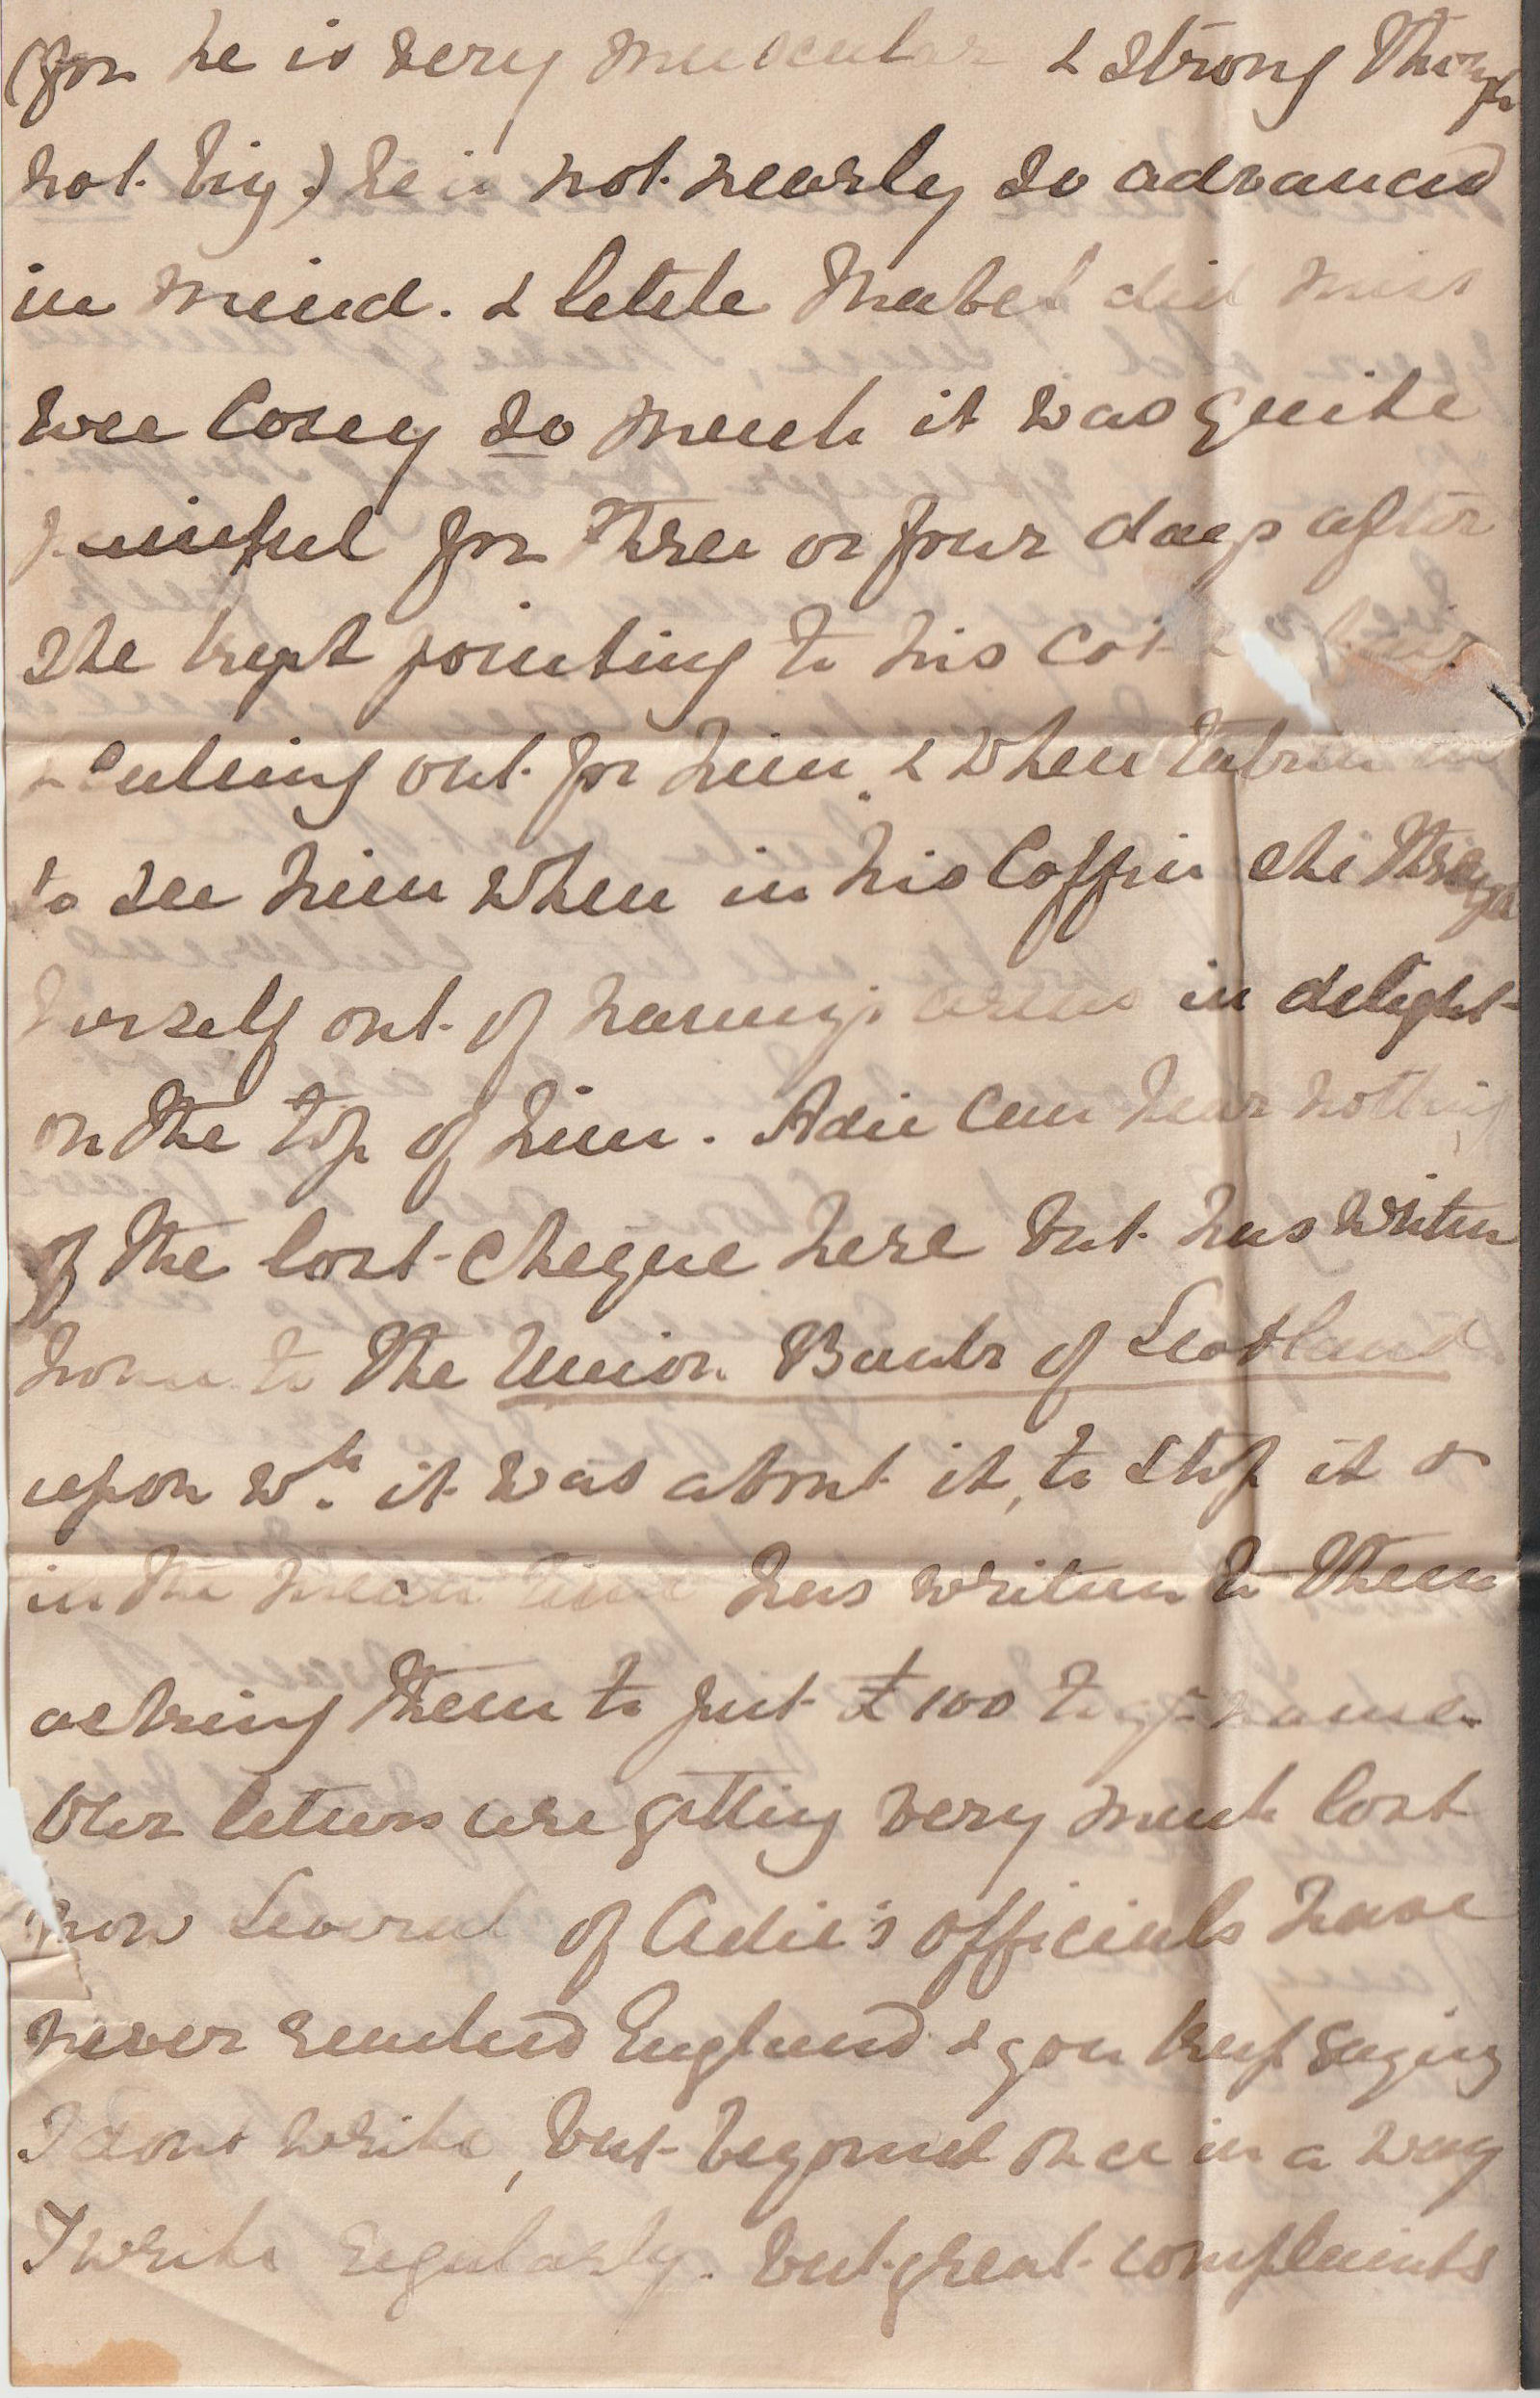 (for he is very muscular & strong though
not big) he is not nearly so advanced
in mind. & little Mabel did miss
wee Cosey so much it was quite
painful for three or four days after
she kept pointing to his cot &
& calling out for him. & when taken in
to see him when in his Coffin she threw
herself out of arms in delight
on the top of him. Adie can hear nothing
of the lost cheque here but has written
home to the Union Bank of Scotland
upon wh. it was about it, to stop it &
in the mean time has written to them
asking them to put £100 to yr name.
Our letters are getting very much lost
now Several of Adie's officials have
never reached England & you keep saying
I dont write, but beyond once in a way
I write regularly. but great complaints